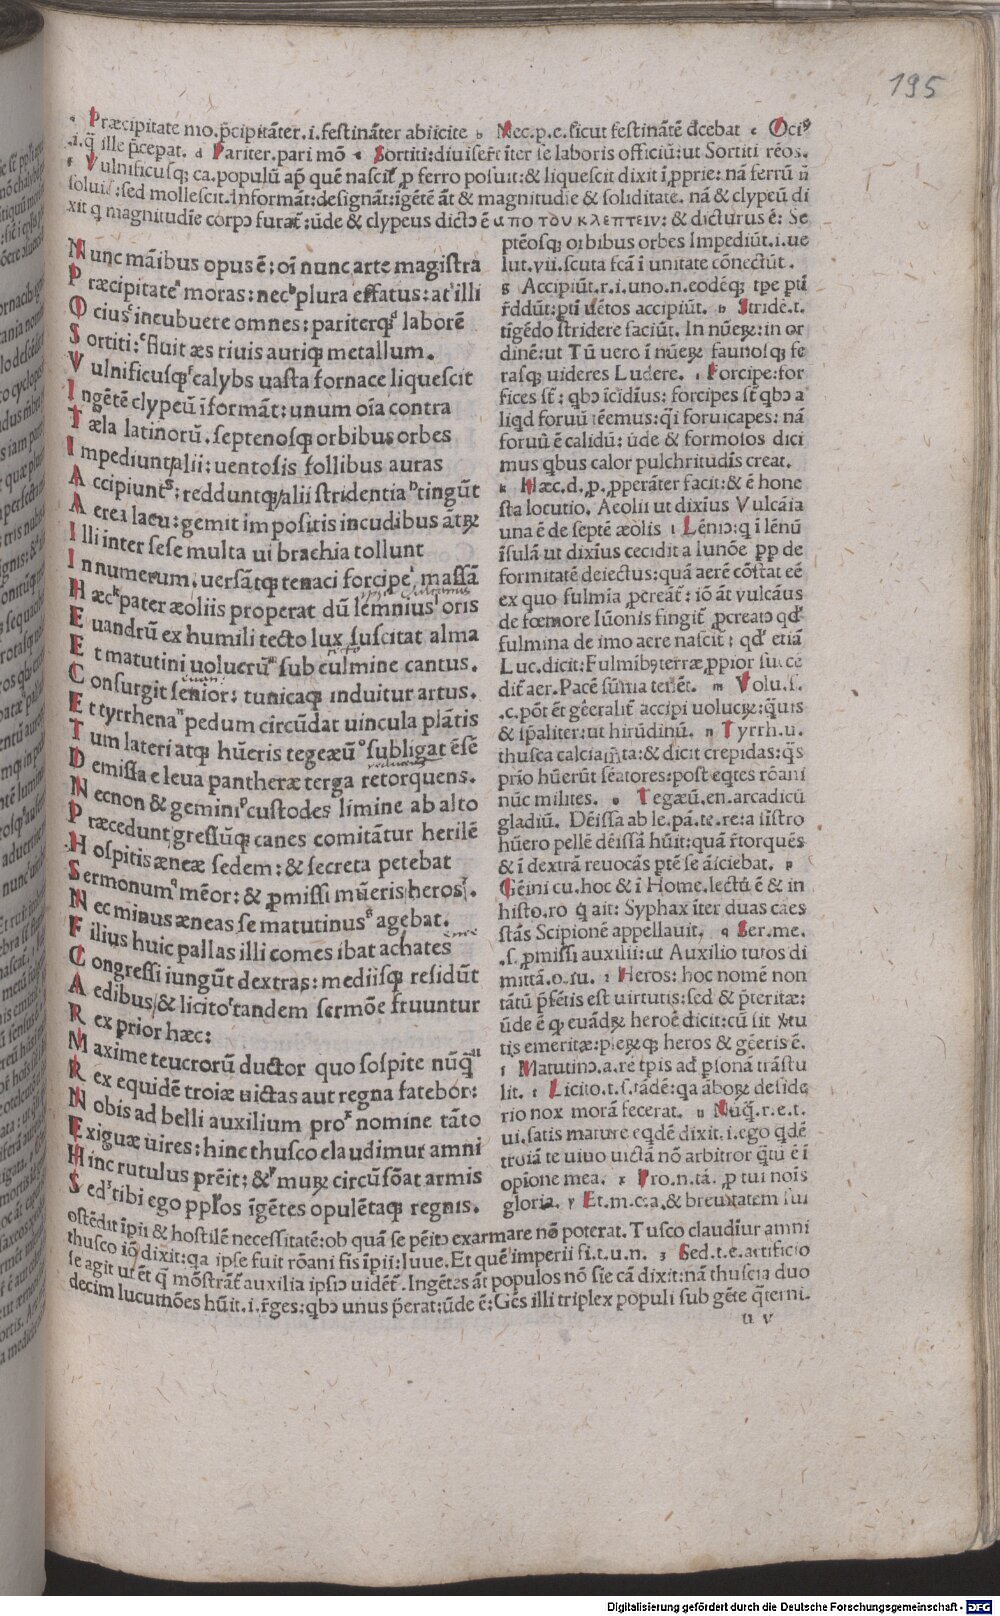 195
a Præcipitate mo. p̄cipitāter. i. festināter abiicite b Nec. p. e. sicut festināte d̄cebat c Ociꝰ
.i. q̄ ille p̄cepat. d Pariter. pari mō e Sortiti: diuiserūt īter se laboris officiū: ut Sortiti rēos.
f Vulnificusq; ca. populū ap̄ quē nascit̃ ꝓ ferro posuit: & liquescit dixit īpprie: nā ferrū n̄
soluit̃: sed mollescit. Informāt: designāt: īgētē āt & magnitudīe & soliditate. nā & clypeū di
xit q magnitudīe corpꝰ furat̃: ūde & clypeus dictꝰ ē απο του κλεπτειν: & dicturus ē: Se
Nunc māibus opus ē: oī nunc arte magistra
Præcipitate moras: nec plura effatus: at illi
Ocius incubuere omnes: pariterq; laborē
Sortiti: fluit æs riuis auriq; metallum.
Vulnificusq; calybs uasta fornace liquescit
Ingētē clypeū īformāt: unum oīa contra
Tæla latinorū. septenosq; orbibus orbes
Impediunt/alii: uentosis follibus auras
Accipiunt: redduntq;/alii stridentia tingūt
Aerea lacu: gemit impositis incudibus ātꝝ
Illi inter sese multa ui brachia tollunt
In numerum. uersātq; tenaci forcipe massā
Hæc pater æoliis properat dū lemnius oris
Euandrū ex humili tecto lux suscitat alma
Et matutini uolucrū sub culmine cantus.
Consurgit senior: tunicaq; induitur artus.
Et tyrrhena pedum circūdat uincula plātis
Tum lateri atq; hūeris tegeæū subligat ēsē
Demissa e leua pantheræ terga retorquens.
Necnon & gemini custodes limine ab alto
Præcedunt gressūq; canes comitātur herilē
Hospitis æneæ sedem: & secreta petebat
Sermonum mēor: & ꝓmissi mūeris heros.
Nec minus æneas se matutinus agebat.
Filius huic pallas illi comes ibat achates
Congressi iungūt dextras: mediisq; residūt
Aedibus/& licito tandem sermōe fruuntur
Rex prior hæc:
Maxime teucrorū ductor quo sospite nūq̄
Rex equidē troiæ uictas aut regna fatebor:
Nobis ad belli auxilium pro nomine tāto
Exiguæ uires: hinc thusco claudimur amni
Hinc rutulus prēit: & muꝝ circūsōat armis
Sed tibi ego pplos īgētes opulētaq; regnis.
ptēosq; orbibus orbes Impediūt. i. ue
lut. vii. scuta fcā ī unitate cōnectūt.
g Accipiūt. r. i. uno. n. eodēq; tpe pti
r̄ddūt: pti uētos accipiūt. h Stridē. t.
tīgēdo stridere faciūt. In nūeꝝ: in or
dinē: ut Tū uero ī nūeꝝ faunosq; fe
rasq; uideres Ludere. i Forcipe: for
fices st̄: qbꝰ īcidius: forcipes st̄ qbꝰ a
liqd foruū tēemus: q̄i foruicapes: nā
foruū ē calidū: ūde & formosos dici
mus qbus calor pulchritudīs creat.
k Hæc. d. p. ꝓperāter facit: & ē hone
sta locutio. Aeolii ut dixīus Vulcāia
una ē de septē æolis l Lēniꝰ: q ī lēnū
īsulā ut dixīus cecidit a Iunōe ꝓp de
formitatē deiectus: quā aerē cōstat eē
ex quo fulmīa ꝓcreāt̃: iō āt vulcāus
de fœmore Iūonis fingit̃ ꝓcreatꝰ qd
fulmina de imo aere nascūt̃: qd etiā
Luc. dicit: Fulmībꝰ terræ ꝓpior succē
dit̃ aer. Pacē sūma tenēt. m Volu. s.
.c. pōt ēt gēeralit̃ accipi uolucꝝ: q̄uis
& īp̄aliter: ut hirūdinū. n Tyrrh. u.
thusca calciamta: & dicit crepidas: q̄s
prīo hūerūt sēatores: post eqtes rōani
nūc milites. o Tegæū. en. arcadicū
gladiū. Dēissa ab le. pā. te. re: a sīistro
hūero pellē dēissā hūit: quā r̄torquēs
& ī dextrā reuocās ptē se āiciebat. p
Gēini cu. hoc & ī Home. lectū ē & in
histo. ro q̄ ait: Syphax īter duas caes
stās Scipionē appellauit. q Ser. me.
.s. ꝓmissi auxilii: ut Auxilio tutos di
mittā. o. iu. r Heros: hoc nomē non
tātū p̄sētis est uirtutis: sed & p̄teritæ:
ūde ē q euādꝝ heroē dicit: cū sit uirtu
tis emeritæ: pleꝝq; heros & gēeris ē.
s Matutinꝰ. a. re tpis ad p̱sonā trāstu
lit. t Licito. t. s. tādē: qa āboꝝ deside
rio nox morā fecerat. u Nūq̄. r. e. t.
ui. satis mature eqdē dixit. i. ego qdē
troiā te uiuo uictā nō arbitror q̄tū ē ī
opīone mea. x Pro. n. tā. ꝓ tui noīs
gloria. y Et. m. c: a. & breuitatem sui
ostēdit īpii & hostilē necessitatē: ob quā se pēitꝰ exarmare nō poterat. Tusco claudīur amni
thusco iō dixit: qa ipse fuit rōani fīs īpii: Iuue. Et quē imperii fi. t. u. n. z Sed. t. e. artificio
se agit ut ēt q̄ mōstrāt̃ auxilia ipsꝰ uidēt̃. Ingētes āt populos nō sīe cā dixit: nā thuscia duo
decim lucumōes hūit. i. r̄ges: qbꝰ unus p̄erat: ūde ē: Gēs illi triplex populi sub gēte q̄terni.
u v
Digitalisierung gefördert durch die Deutsche Forschungsgemeinschaft - DFG